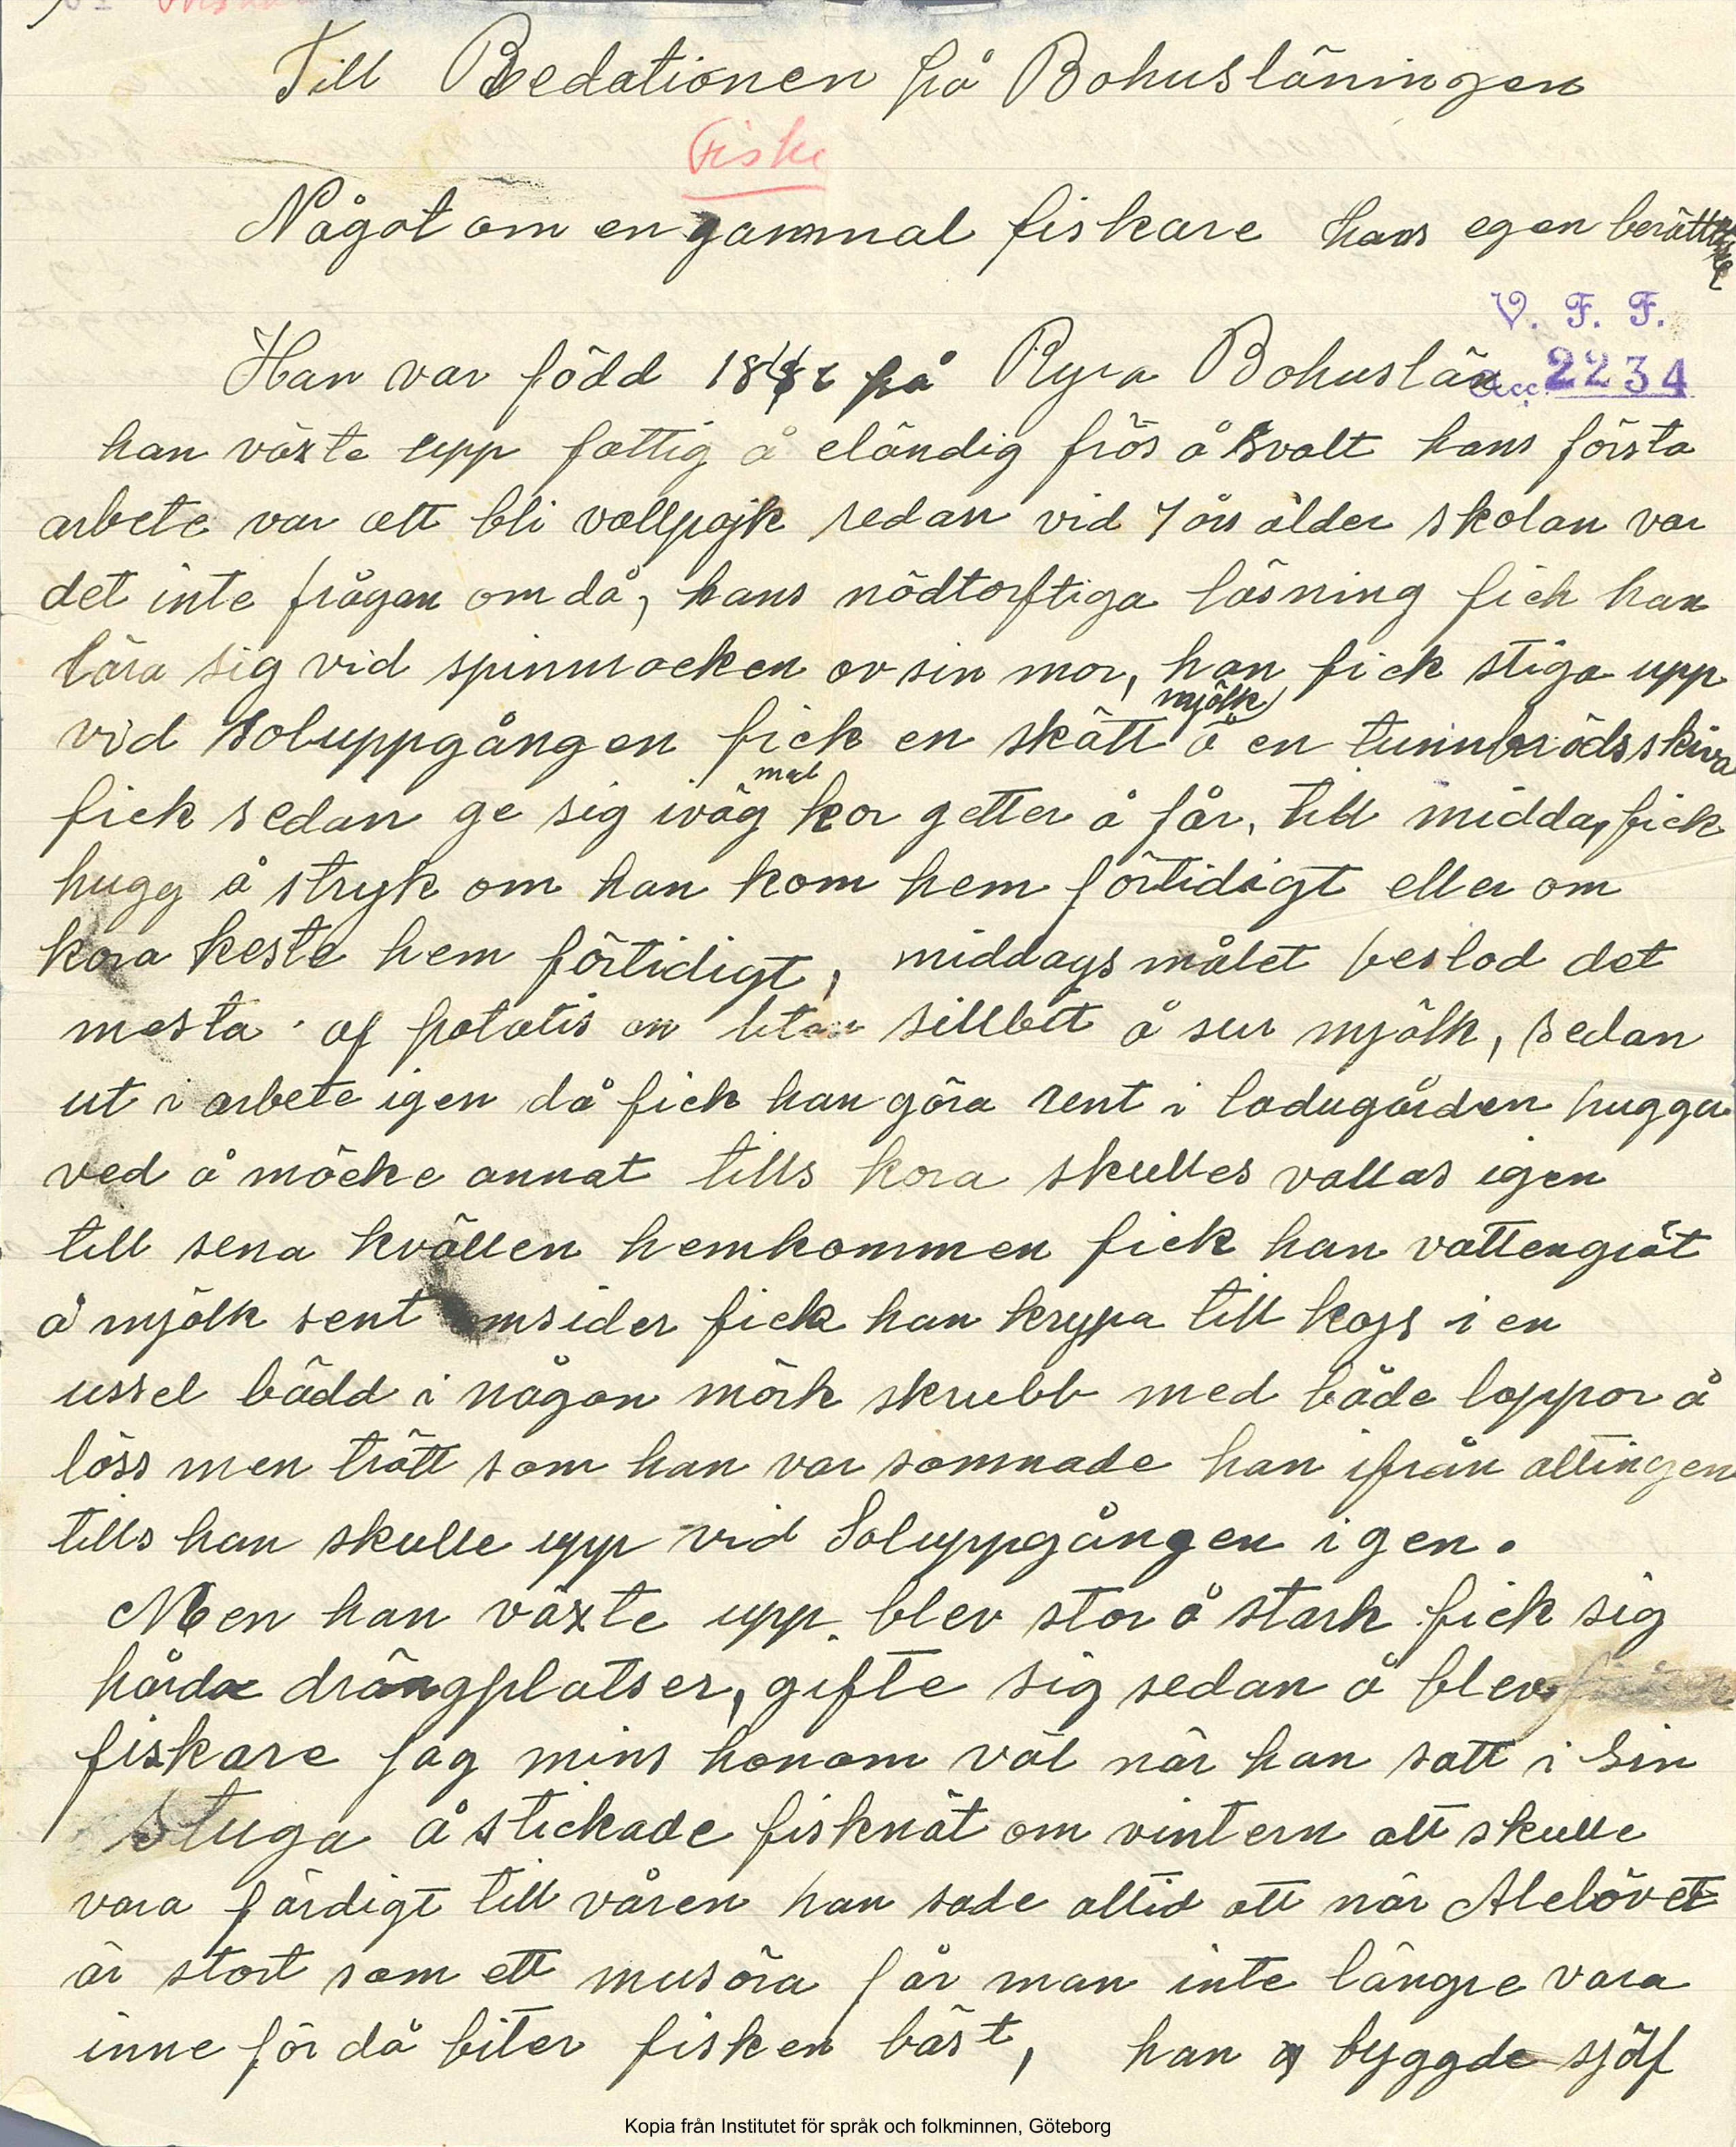 Till Redationen på Bohusläningen
Fiske
Något om en gammal fiskare hans egen
V. F. F.
Acc. 2234
Han var född på Ryra Bohuslän
han växte upp fattig å eländig frös å svalt hans första
arbete var att bli vallpojk redan vid 7 års ålder skolan var
det inte frågan om då, hans nödtorftiga läsning fick han
lära sig vid spinnrocken av sin mor, han fick stiga upp
vid soluppgången fick en skätt mjölk å en tunnbrödsskiva
fick sedan ge sig iväg med kor getter å får, till middag, fick
hugg å stryk om han kom hem förtidigt eller om
kora keste hem förtidigt, middagsmålet bestod det
mesta af potatis en liten sillbit å sur mjölk, sedan
ut i arbete igen då fick han göra rent i ladugården hugga
ved å möcke annat tills kora skulles vallas igen
till sena kvällen hemkommen fick han vattengröt
å mjölk sent omsider fick han krypa till kojs i en
ussel bädd i någon mörk skrubb med både loppor å
löss men trött som han var somnade han ifrån altingen
tills han skulle upp vid Soluppgången igen.
Men han växte upp. blev stor å stark fick sig
hårda drängplatser, gifte sig sedan å blev
fiskare jag mins honom väl när han satt i sin
stuga å stickade fisknät om vintern att skulle
vara färdigt till våren han sade altid att när Alelövet
är stort som ett musöra får man inte längre vara
inne för då biter fisken bäst, han byggde sjölf
Kopia från Institutet för språk och folkminnen, Göteborg